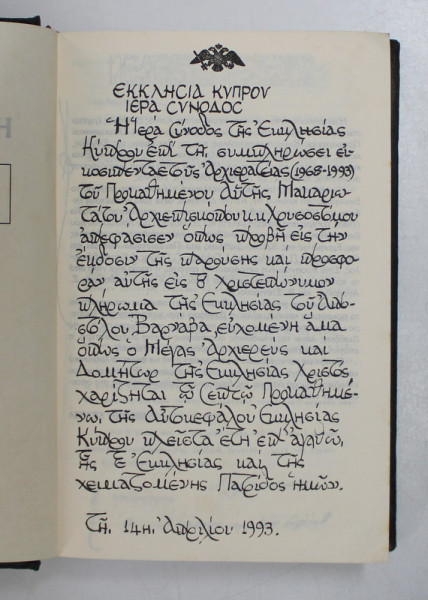 ΕΚΚΛΗCΙΑ ΚΥΠΡΟΥ
ΙΕΡΑ CΥΝΟΔΟC
Ἡ Ἱερά Σύνοδος τῆς Ἐκκλησίας
Κύπρου ἐπί τῇ συμπληρώσει εἰ-
κοσιπενταετοῦς Ἀρχιερατείας (1968-1993)
τοῦ Προκαθημένου Αὐτῆς Μακαριω-
τάτου Ἀρχιεπισκόπου κ.κ. Χρυσοστόμου
ἀπεφάσισεν ὅπως προβῇ εἰς τήν
ἔκδοσιν τῆς παρούσης καί προσφο-
ράν αὐτῆς εἰς τό χριστεπώνυμον
πλήρωμα τῆς Ἐκκλησίας τοῦ Ἀπο-
στόλου Βαρνάβα, εὐχομένη ἅμα
ὅπως ὁ Μέγας Ἀρχιερεύς καί
Δομήτωρ τῆς Ἐκκλησίας Χριστός
χαρίζηται τῷ Σεπτῷ Προκαθημέ-
νῳ τῆς Αὐτοκεφάλου Ἐκκλησίας
Κύπρου πλεῖστα ἔτη ἐπ' ἀγαθῷ
τῆς τε Ἐκκλησίας καί τῆς
χειμαζομένης Πατρίδος ἡμῶν.
Τῇ 14ῃ Ἀπριλίου 1993.